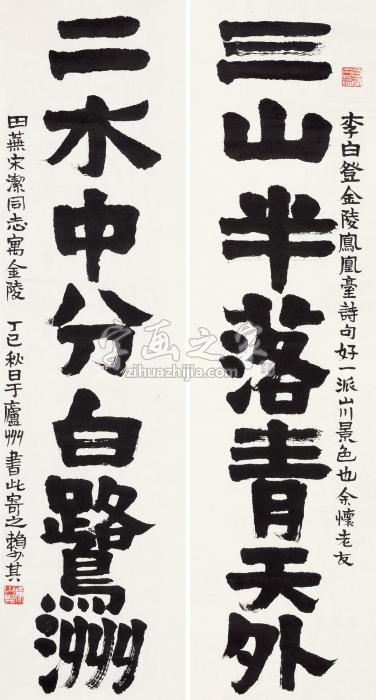 李白登金陵鳳凰臺詩句好一派山川景色也余懷老友
三山半落青天外
二水中分白鷺洲
田蕪宋潔同志寓金陵 丁巳秋日于廬州書此寄之賴少其
字画之家
zihuazhijia.com